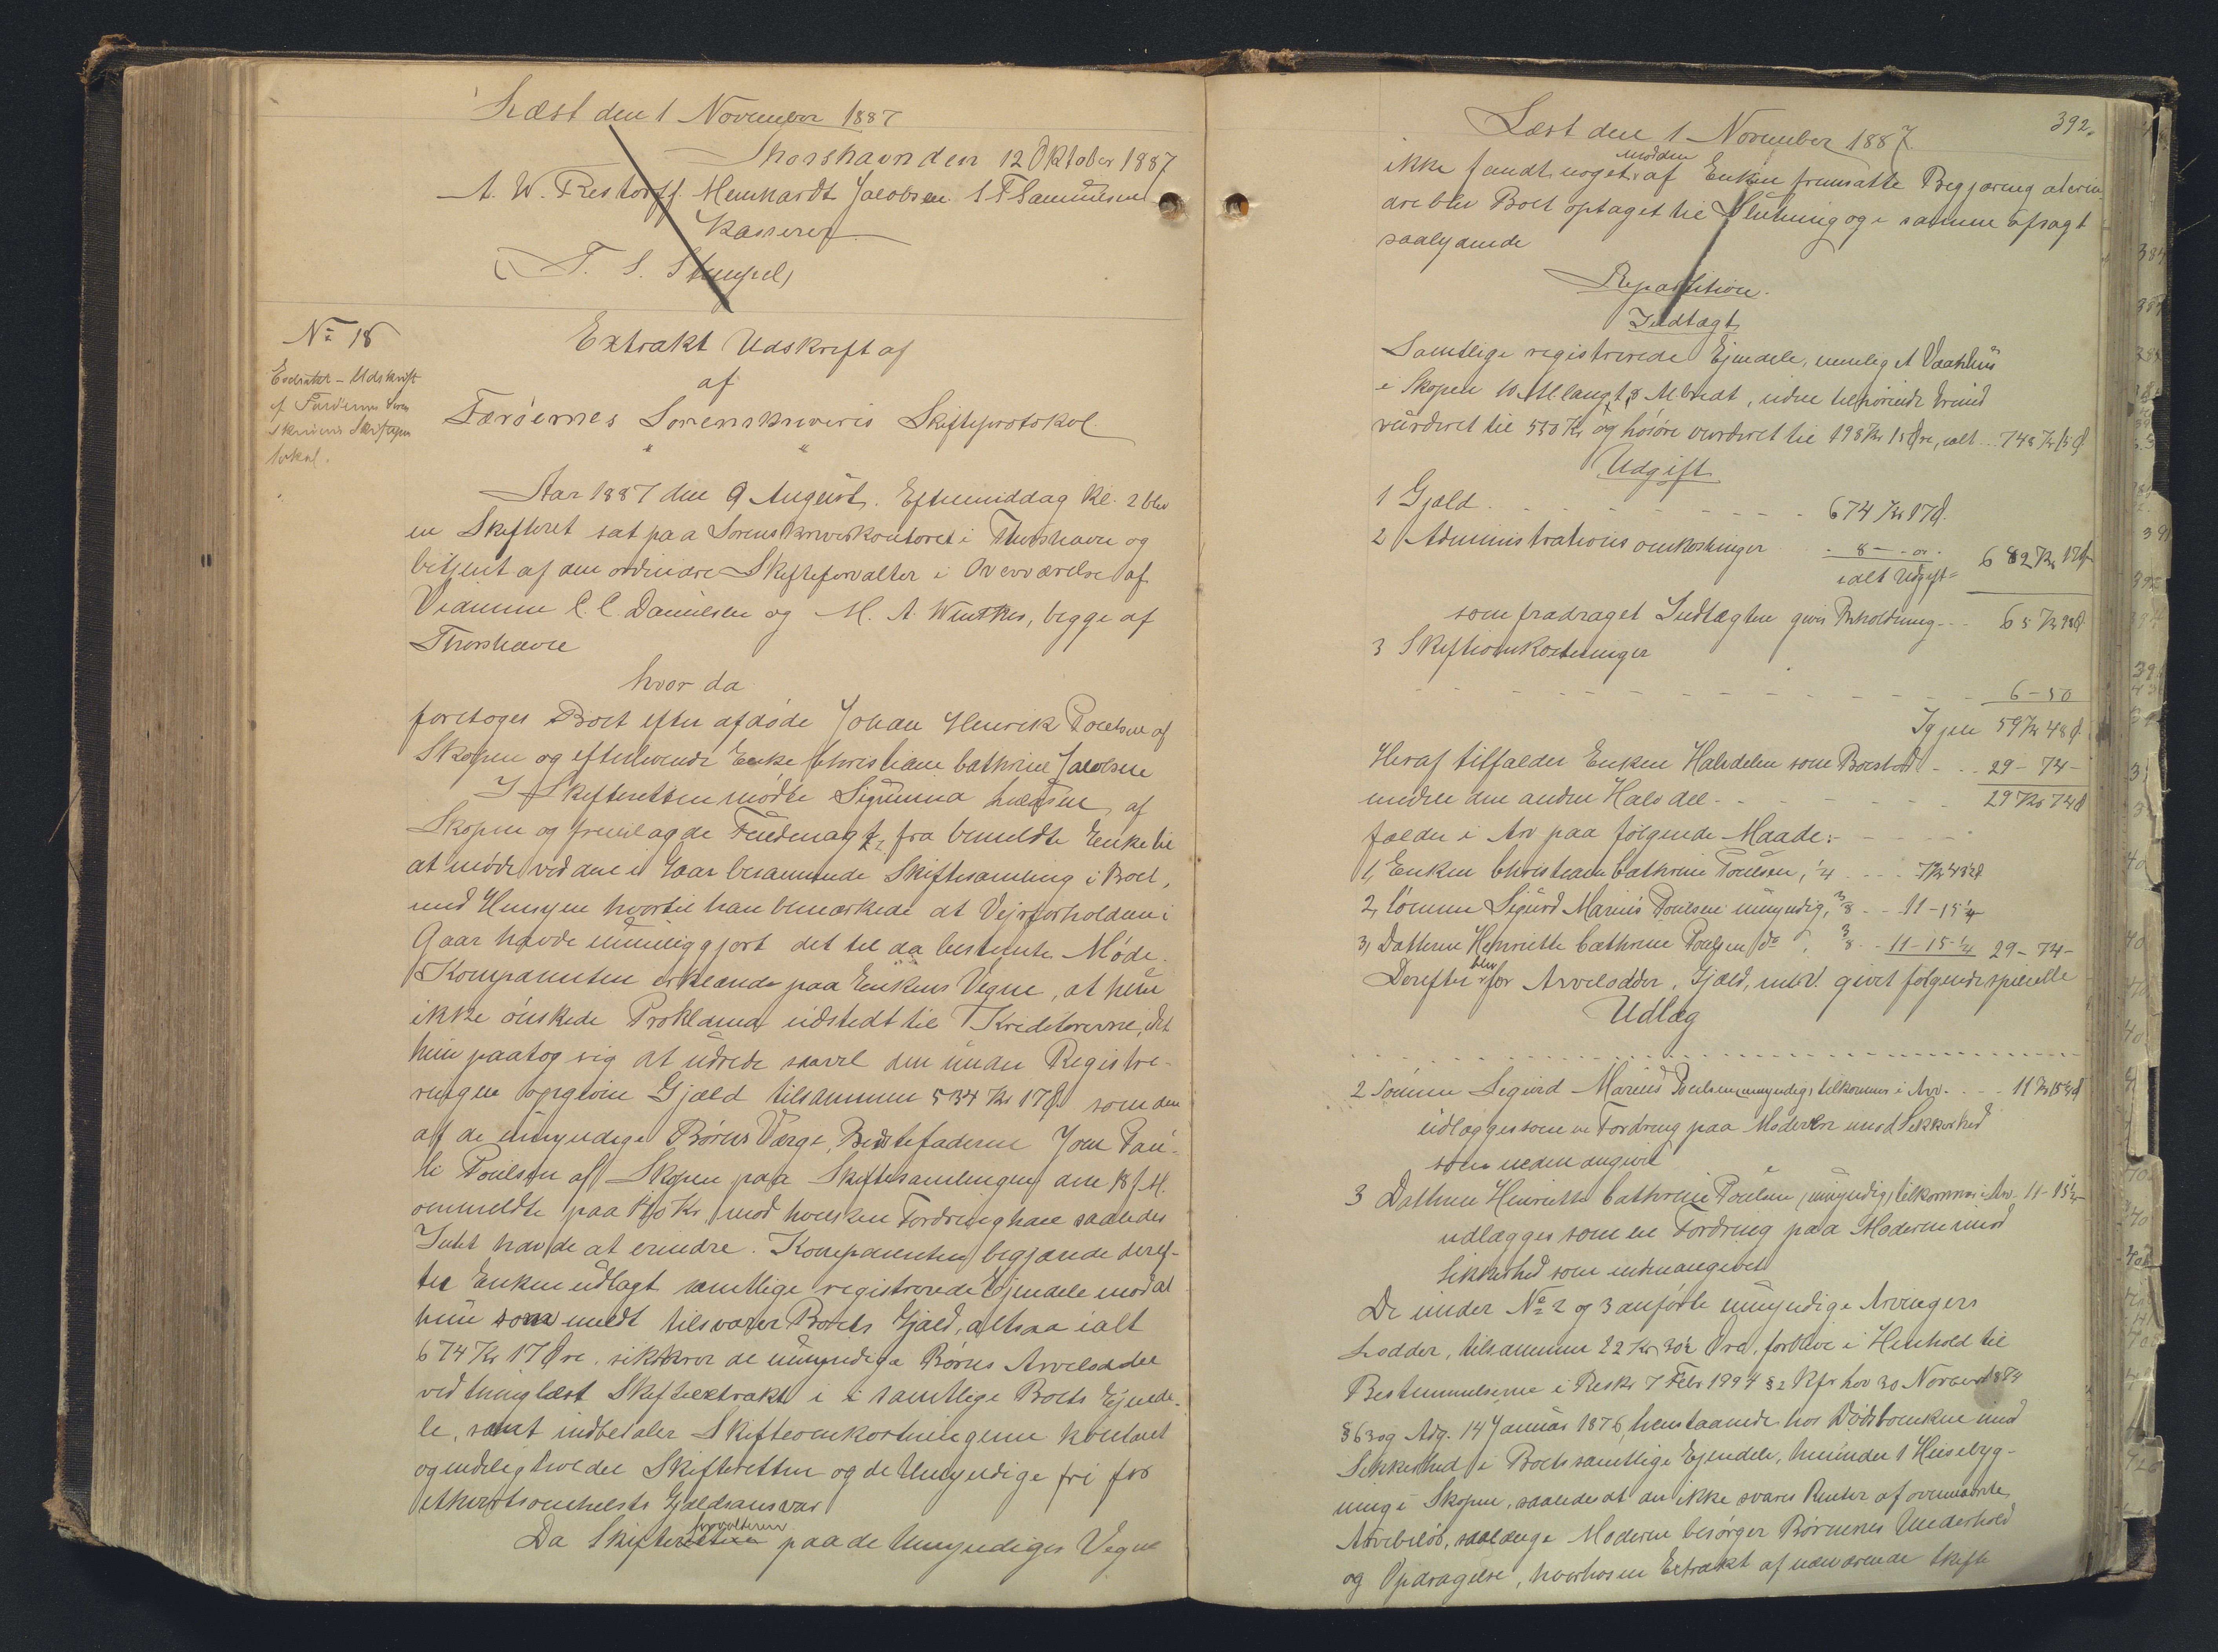 Læst den 1 November 1887
Thorshavn den 12 Oktober 1887
A. W. Restorff. Meinhardt Jacobsen S F Samuelsen
Kasserer
(T. S. Stempel)
No 18
Extrakt-Udskrift
af Færöernes Soren
skriveris Skiftepro
tokol.
Extrakt Udskrift af
af
Færöernes Sorenskriveris Skifteprotokol.
Aar 1887 den 9 August. Eftermiddag Kl. 2 blev
en Skifteret sat paa Sorenskriverkontoret i Thorshavn og
betjent af den ordinære Skifteforvalter i Overværelse af
Vidnerne C. C. Danielsen og M. A. Winther, begge af
Thorshavn
hvor da
foretoges Boet efter afdøde Johan Henrik Poulsen af
Skopen og efterlevende Enke Christiane Cathrine Jacobsen
I Skifteretten mødte af
Skopen og fremlagde Fuldmagt fra bemeldte Enke til
at møde ved den i Gaar berammede Skiftesamling i Boet,
med Hensyn hvortil han bemærkede at Vejrforholdene i
Gaar havde umuliggjort det til da bestemte Møde.
Komparenten erklærede paa Enkens Vegne, at hun
ikke ønskede Proklama udstedt til Kreditorerne, idet
hun paatog sig at udrede saavel den under Registre-
ringen opgivne Gjæld tilsammen 534 Kr 17 Ø som den
af de umyndige Børns Værge, Bedstefaderen Joen Pau-
li Poulsen af Skopen paa Skiftesamlingen den 18 f. M.
ommeldte paa 140 Kr, mod hvilken Fordring han saaledes
Intet havde at erindre. Komparenten begjærede deref-
ter Enken udlagt samtlige registrerede Ejendele mod at
hun som meldt tilsvarer Boets Gjæld, altsaa ialt
674 Kr 17 Øre, sikkrer de umyndige Børns Arvelodder
ved thinglæst Skifteextrakt i samtlige Boets Ejende-
le, samt indbetaler Skifteomkostningerne kontant
og endelig holder Skifteretten og de Umyndige fri for
ethvertsomhelst Gjældsansvar
forvalteren
Da Skifteretten paa de Umyndiges Vegne
392.
Læst den 1 November 1887
modden
ikke fandt noget af Enken fremsatte Begjæring at erin
dre blev Boet optaget til Slutning og i samme afsagt
saalydende
Repartition.
Indtægt
Samtlige registrerede Ejendele, nemlig et Vaahus
i Skopen 10 Al. langt, 8 Al. bredt, uden tilhørende Grund
vurderet til 550 Kr og Løsøre vurderet til 198 Kr 15 Øre, ialt - 748 Kr 15 Ø
Udgift
1 Gjæld - - - 674 Kr 17 Ø.
2 Administrations omkostninger - 8 - or - 682 Kr 17 Ø
ialt Udgift =
som fradraget Indtægten giver Beholdning - - - 65 Kr 98 Ø
3 Skifteomkostninger
- - - 6 - 50
Igjen 59 Kr 48 Ø
Heraf tilfalder Enken Halvdelen som Boeslod - - 29 - 74 -
medens den anden Halvdel - - - 29 Kr 74 Ø
falder i Arv paa følgende Maade: -
1, Enken Christiane Cathrine Poulsen, 1/4 - - - 7 Kr 43½ Ø
2, Sønnen Sigurd Marius Poulsen umyndig, 3/8 - - 11 - 15¼
3, Datteren Henriette Cathrine Poulsen do, 3/8 - - 11 - 15¼ 29 - 74 -
blev
Derefter for Arvelodder, Gjæld, m.v. givet følgende specielle
Udlæg
2 Sønnen Sigurd Marius Poulsen (umyndig) tilkommer i Arv - - 11 Kr 15¼ Ø
udlægges som en Fordring paa Moderen mod Sikkerhed
som neden angivet
3 Datteren Henriette Cathrine Poulsen, (umyndig) tilkommer i Arv. 11 - 15¼
udlægges som en Fordring paa Moderen mod
Sikkerhed som nedenangivet
De under No 2 og 3 anførte umyndige Arvingers
Lodder, tilsammen 22 Kr 30½ Øre, forblive i Henhold til
Bestemmelserne i Reskr 7 Febr 1794 § 2 Kfr Lov 30 Novemb 1874
§ 63 og Adg. 14 Januar 1876, henstaaende hos Dødsboenken mod
Sikkerhed i Boets samtlige Ejendele, herunder 1 Husebyg-
ning i Skopen, saaledes at der ikke svares Renter af ovennævnte
Arvebeløb, saalænge Moderen besørger Børnenes Underhold
og Opdragelse, hvorhos en Extrakt af nærværende Skifte